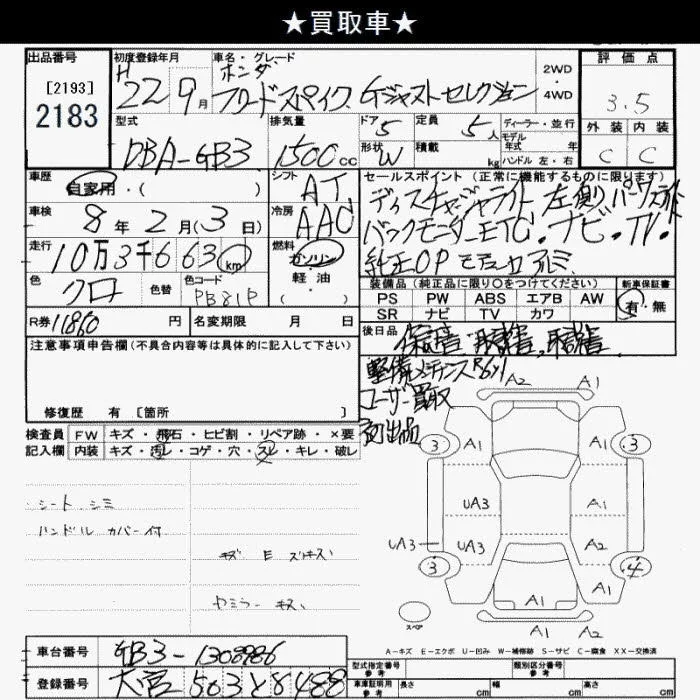 ★買取車★
出品番号 初度登録年月 車名・グレード 評価点
[2193] H ホンダ 2WD
2183 22年9月 フリードスパイク Gジャストセレクション ・ 4WD 3.5
型式 排気量 ドア 定員 ディーラー・並行 外装 内装
DBA-GB3 1500cc 5 5人 モデル年式 年 C C
形状 W 積載 kg ハンドル 左・右
車歴 シフト セールスポイント(正常に機能するものに限ります)
自家用・( ) AT ディスチャージライト 左側パワスラ
車検 冷房 バックモニター ETC・ナビ・TV・
8年2月(3日) AAC 純正OP モデューロアルミ
走行 燃料
10万3千663km ガソリン・軽油
装備品(純正品に限り○をつけてください) 新車保証書
色 色替 色コード ( )
クロ PB81P
PS PW ABS エアB AW 有・無
SR ナビ TV カワ
R券 11860円 名変期限 月 日
後日品 保証書 取説
注意事項申告欄(不具合内容等は具体的に記入して下さい)
整備
ユーザー買取
修復歴 有 [箇所 ]
検査員 FW キズ・飛石・ヒビ割・リペア跡・×要
記入欄 内装 キズ・汚レ・コゲ・穴・スレ・キレ・破レ
シート シミ
ハンドル カバー付
キズ E スリキズ
A2 A1
3 A1 A1 3
UA3 A1
UA3 UA3 A2
3 A1 A1 4
A1 A2
スペア
A-キズ E-エクボ U-凹み W-補修跡 S-サビ C-腐食 XX-交換済
車台番号 GB3-1308986
登録番号 大宮 503 8488
型式指定番号 参考 類別区分番号 参考
車庫証明用 参考 長さ cm 幅 cm 高さ cm